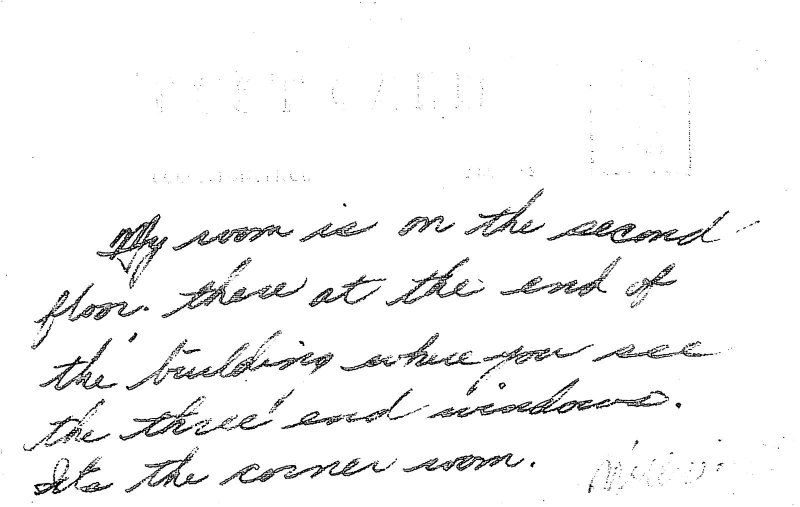 POST CARD
My room is on the second
floor. there at the end of
the building where you see
the three end windows.
Its the corner room.